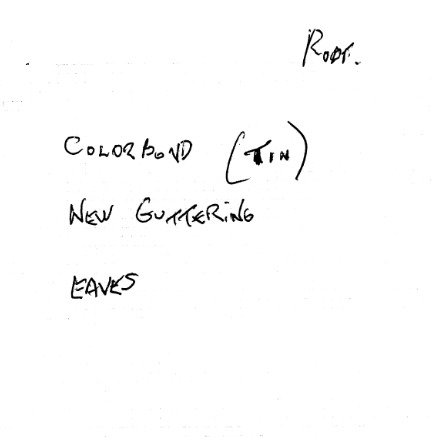 Roof.
COLORBOND (TIN)
NEW GUTTERING
EAVES